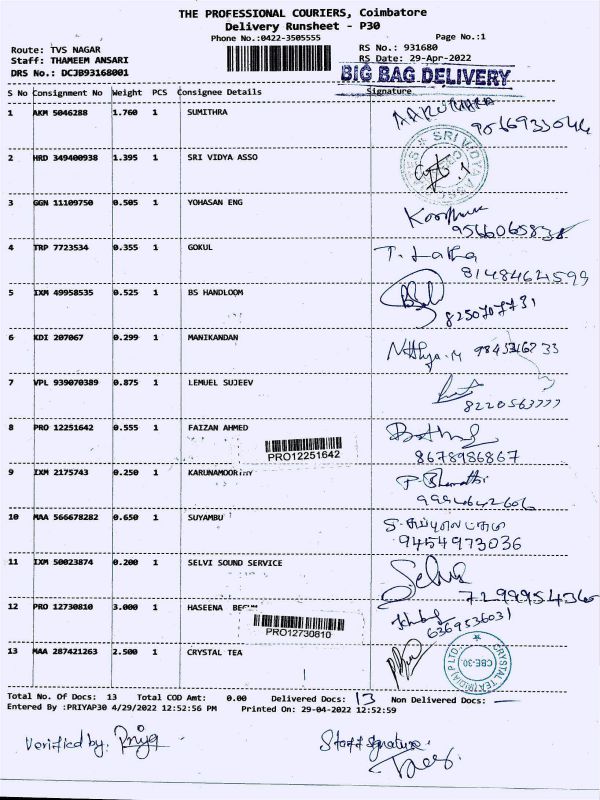 THE PROFESSIONAL COURIERS, Coimbatore
Delivery Runsheet - P30
Phone No.:0422-3505555
Page No.:1
Route: TVS NAGAR
RS No.: 931680
Staff: THAMEEM ANSARI
RS Date: 29-Apr-2022
DRS No.: DCJB93168001
BIG BAG DELIVERY
S No Consignment No Weight PCS Consignee Details Signature
1 AKM 5046288 1.760 1 SUMITHRA
2 HRD 349400938 1.395 1 SRI VIDYA ASSO
3 GGN 11109750 0.505 1 YOHASAN ENG
4 TRP 7723534 0.355 1 GOKUL T. Latha
8148462599
5 IXM 49958535 0.525 1 BS HANDLOOM
8250707731
6 KDI 207067 0.299 1 MANIKANDAN Nithya.M
7 VPL 939070389 0.875 1 LEMUEL SUJEEV
8220563777
8 PRO 12251642 0.555 1 FAIZAN AHMED
PRO12251642
8678986867
9 IXM 2175743 0.250 1 KARUNAMOORTHY P. Bharathi
9994642606
10 MAA 566678282 0.650 1 SUYAMBU
9454973036
11 IXM 50023874 0.200 1 SELVI SOUND SERVICE Selva
12 PRO 12730810 3.000 1 HASEENA BEGUM
PRO12730810
6369536031
13 MAA 287421263 2.500 1 CRYSTAL TEA
CBE-30.
Total No. Of Docs: 13 Total COD Amt: 0.00 Delivered Docs: 13 Non Delivered Docs: -
Entered By :PRIYAP30 4/29/2022 12:52:56 PM Printed On: 29-04-2022 12:52:59
Verified by: Priya
Staff signature.